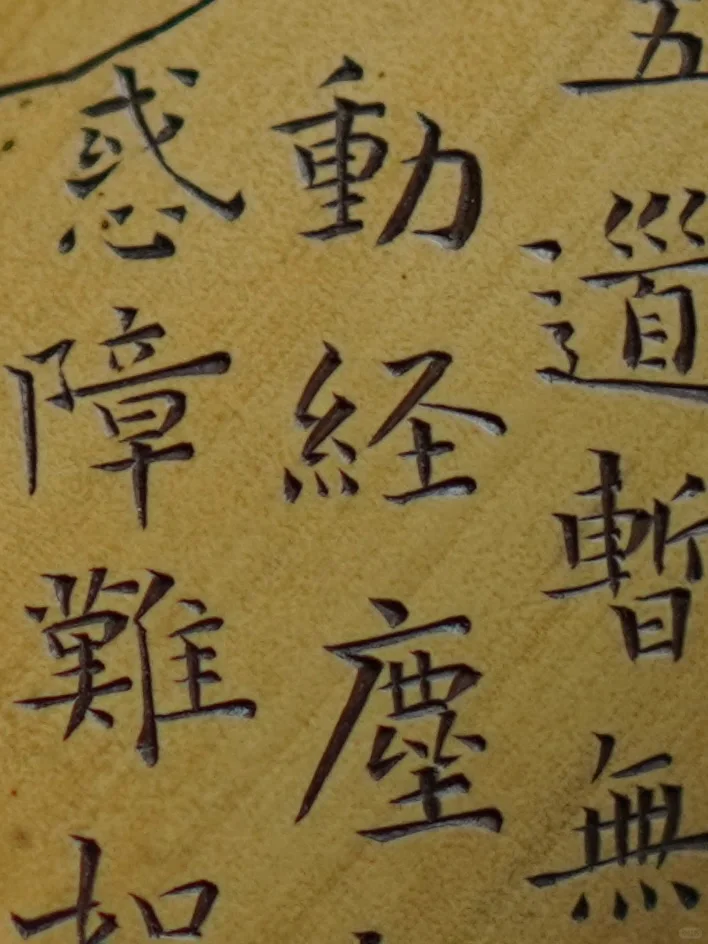 五道暫無
動経塵
惑障難